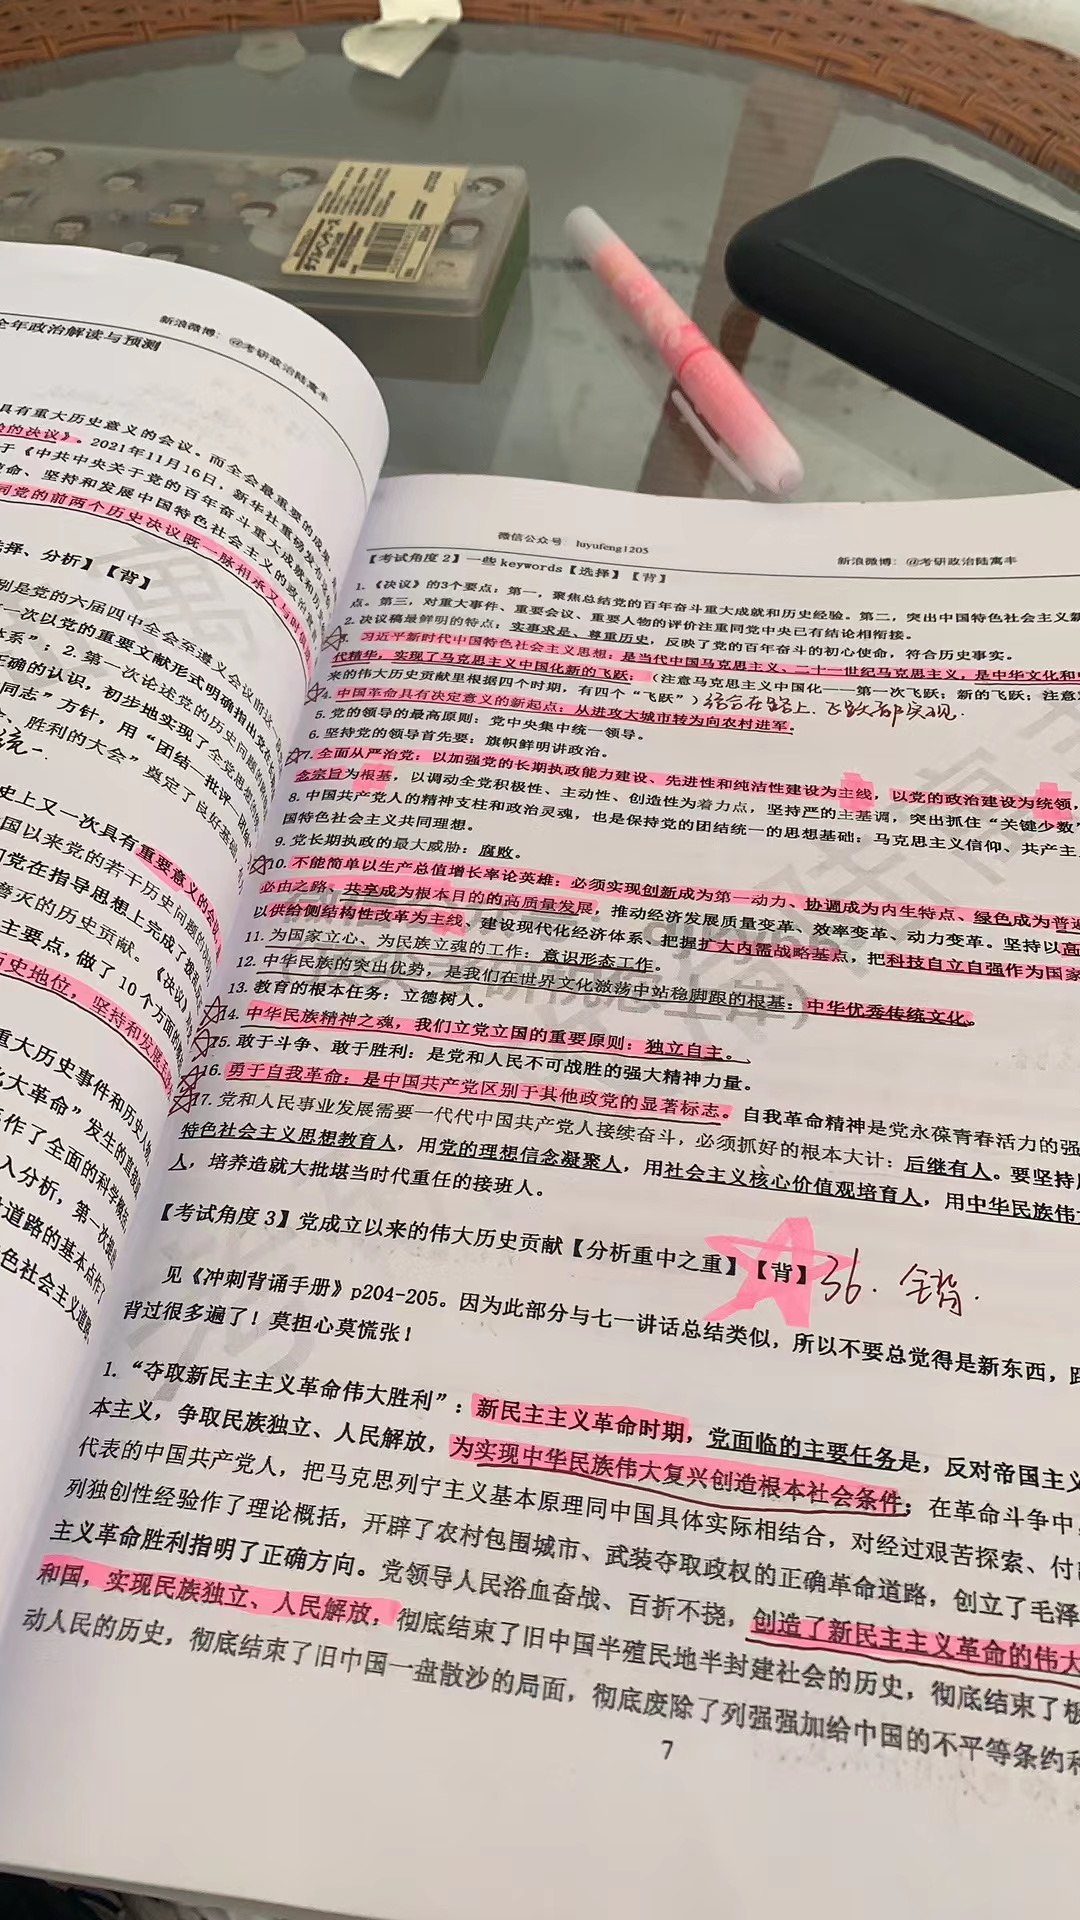 全年政治解读与预测
新浪微博：@考研政治陆寓丰
具有重大历史意义的会议。而全会最重要的成果
的决议》。2021年11月16日，新华社重磅发布
于《中共中央关于党的百年奋斗重大成就和历
命、坚持和发展中国特色社会主义的政治
同党的前两个历史决议既一脉相承又与时俱
择、分析】【背】
别是党的六届四中全会至遵义会议前
一次以党的重要文献形式明确指出
体系”；2.第一次论述党的历史问题
正确的认识，初步地实现了全党思想
同志”方针，用“团结—批评—团结
、胜利的大会”奠定了良好基础
统一
史上又一次具有重要意义的会议
国以来党的若干历史问题的决
们党在指导思想上完成了拨乱
磨灭的历史贡献。《决议》
主要点，做了10个方面的
历史地位，坚持和发展毛
重大历史事件和历史人物
化大革命”发生的
作了全面的科学
入分析，第一次
道路的基本点作了
色社会主义道路
微信公众号 luyufeng1205
新浪微博：@考研政治陆寓丰
【考试角度2】一些keywords【选择】【背】
1.《决议》的3个要点：第一，聚焦总结党的百年奋斗重大成就和历史经验。第二，突出中国特色社会主义新
点。第三，对重大事件、重要会议、重要人物的评价注重同党中央已有结论相衔接。
2.决议稿最鲜明的特点：实事求是、尊重历史，反映了党的百年奋斗的初心使命，符合历史事实。
3.习近平新时代中国特色社会主义思想：是当代中国马克思主义、二十一世纪马克思主义，是中华文化和中
代精华，实现了马克思主义中国化新的飞跃；（注意马克思主义中国化——第一次飞跃；新的飞跃；注意
来的伟大历史贡献里根据四个时期，有四个“飞跃”）结合在路上、飞跃都实现.
4.中国革命具有决定意义的新起点：从进攻大城市转为向农村进军。
5.党的领导的最高原则：党中央集中统一领导。
6.坚持党的领导首先要：旗帜鲜明讲政治。
7.全面从严治党：以加强党的长期执政能力建设、先进性和纯洁性建设为主线，以党的政治建设为统领，
念宗旨为根基，以调动全党积极性、主动性、创造性为着力点，坚持严的主基调，突出抓住“关键少数”
8.中国共产党人的精神支柱和政治灵魂，也是保持党的团结统一的思想基础：马克思主义信仰、共产主
国特色社会主义共同理想。
9.党长期执政的最大威胁：腐败。
10.不能简单以生产总值增长率论英雄：必须实现创新成为第一动力、协调成为内生特点、绿色成为普
必由之路、共享成为根本目的的高质量发展，推动经济发展质量变革、效率变革、动力变革。坚持以高
以供给侧结构性改革为主线、建设现代化经济体系、把握扩大内需战略基点，把科技自立自强作为国家
11.为国家立心、为民族立魂的工作：意识形态工作。
12.中华民族的突出优势，是我们在世界文化激荡中站稳脚跟的根基：中华优秀传统文化。
13.教育的根本任务：立德树人。
14.中华民族精神之魂，我们立党立国的重要原则：独立自主。
15.敢于斗争、敢于胜利：是党和人民不可战胜的强大精神力量。
16.勇于自我革命：是中国共产党区别于其他政党的显著标志。自我革命精神是党永葆青春活力的强
17.党和人民事业发展需要一代代中国共产党人接续奋斗，必须抓好的根本大计：后继有人。要坚持
特色社会主义思想教育人，用党的理想信念凝聚人，用社会主义核心价值观培育人，用中华民族伟
人，培养造就大批堪当时代重任的接班人。
【考试角度3】党成立以来的伟大历史贡献【分析重中之重】【背】36. 全背.
见《冲刺背诵手册》p204-205。因为此部分与七一讲话总结类似，所以不要总觉得是新东西，
背过很多遍了！莫担心莫慌张！
1.“夺取新民主主义革命伟大胜利”：新民主主义革命时期，党面临的主要任务是，反对帝国主义
本主义，争取民族独立、人民解放，为实现中华民族伟大复兴创造根本社会条件；在革命斗争中
代表的中国共产党人，把马克思列宁主义基本原理同中国具体实际相结合，对经过艰苦探索、付
列独创性经验作了理论概括，开辟了农村包围城市、武装夺取政权的正确革命道路，创立了毛泽
主义革命胜利指明了正确方向。党领导人民浴血奋战、百折不挠，创造了新民主主义革命的伟大
和国，实现民族独立、人民解放，彻底结束了旧中国半殖民地半封建社会的历史，彻底结束了极
动人民的历史，彻底结束了旧中国一盘散沙的局面，彻底废除了列强强加给中国的不平等条约和
7